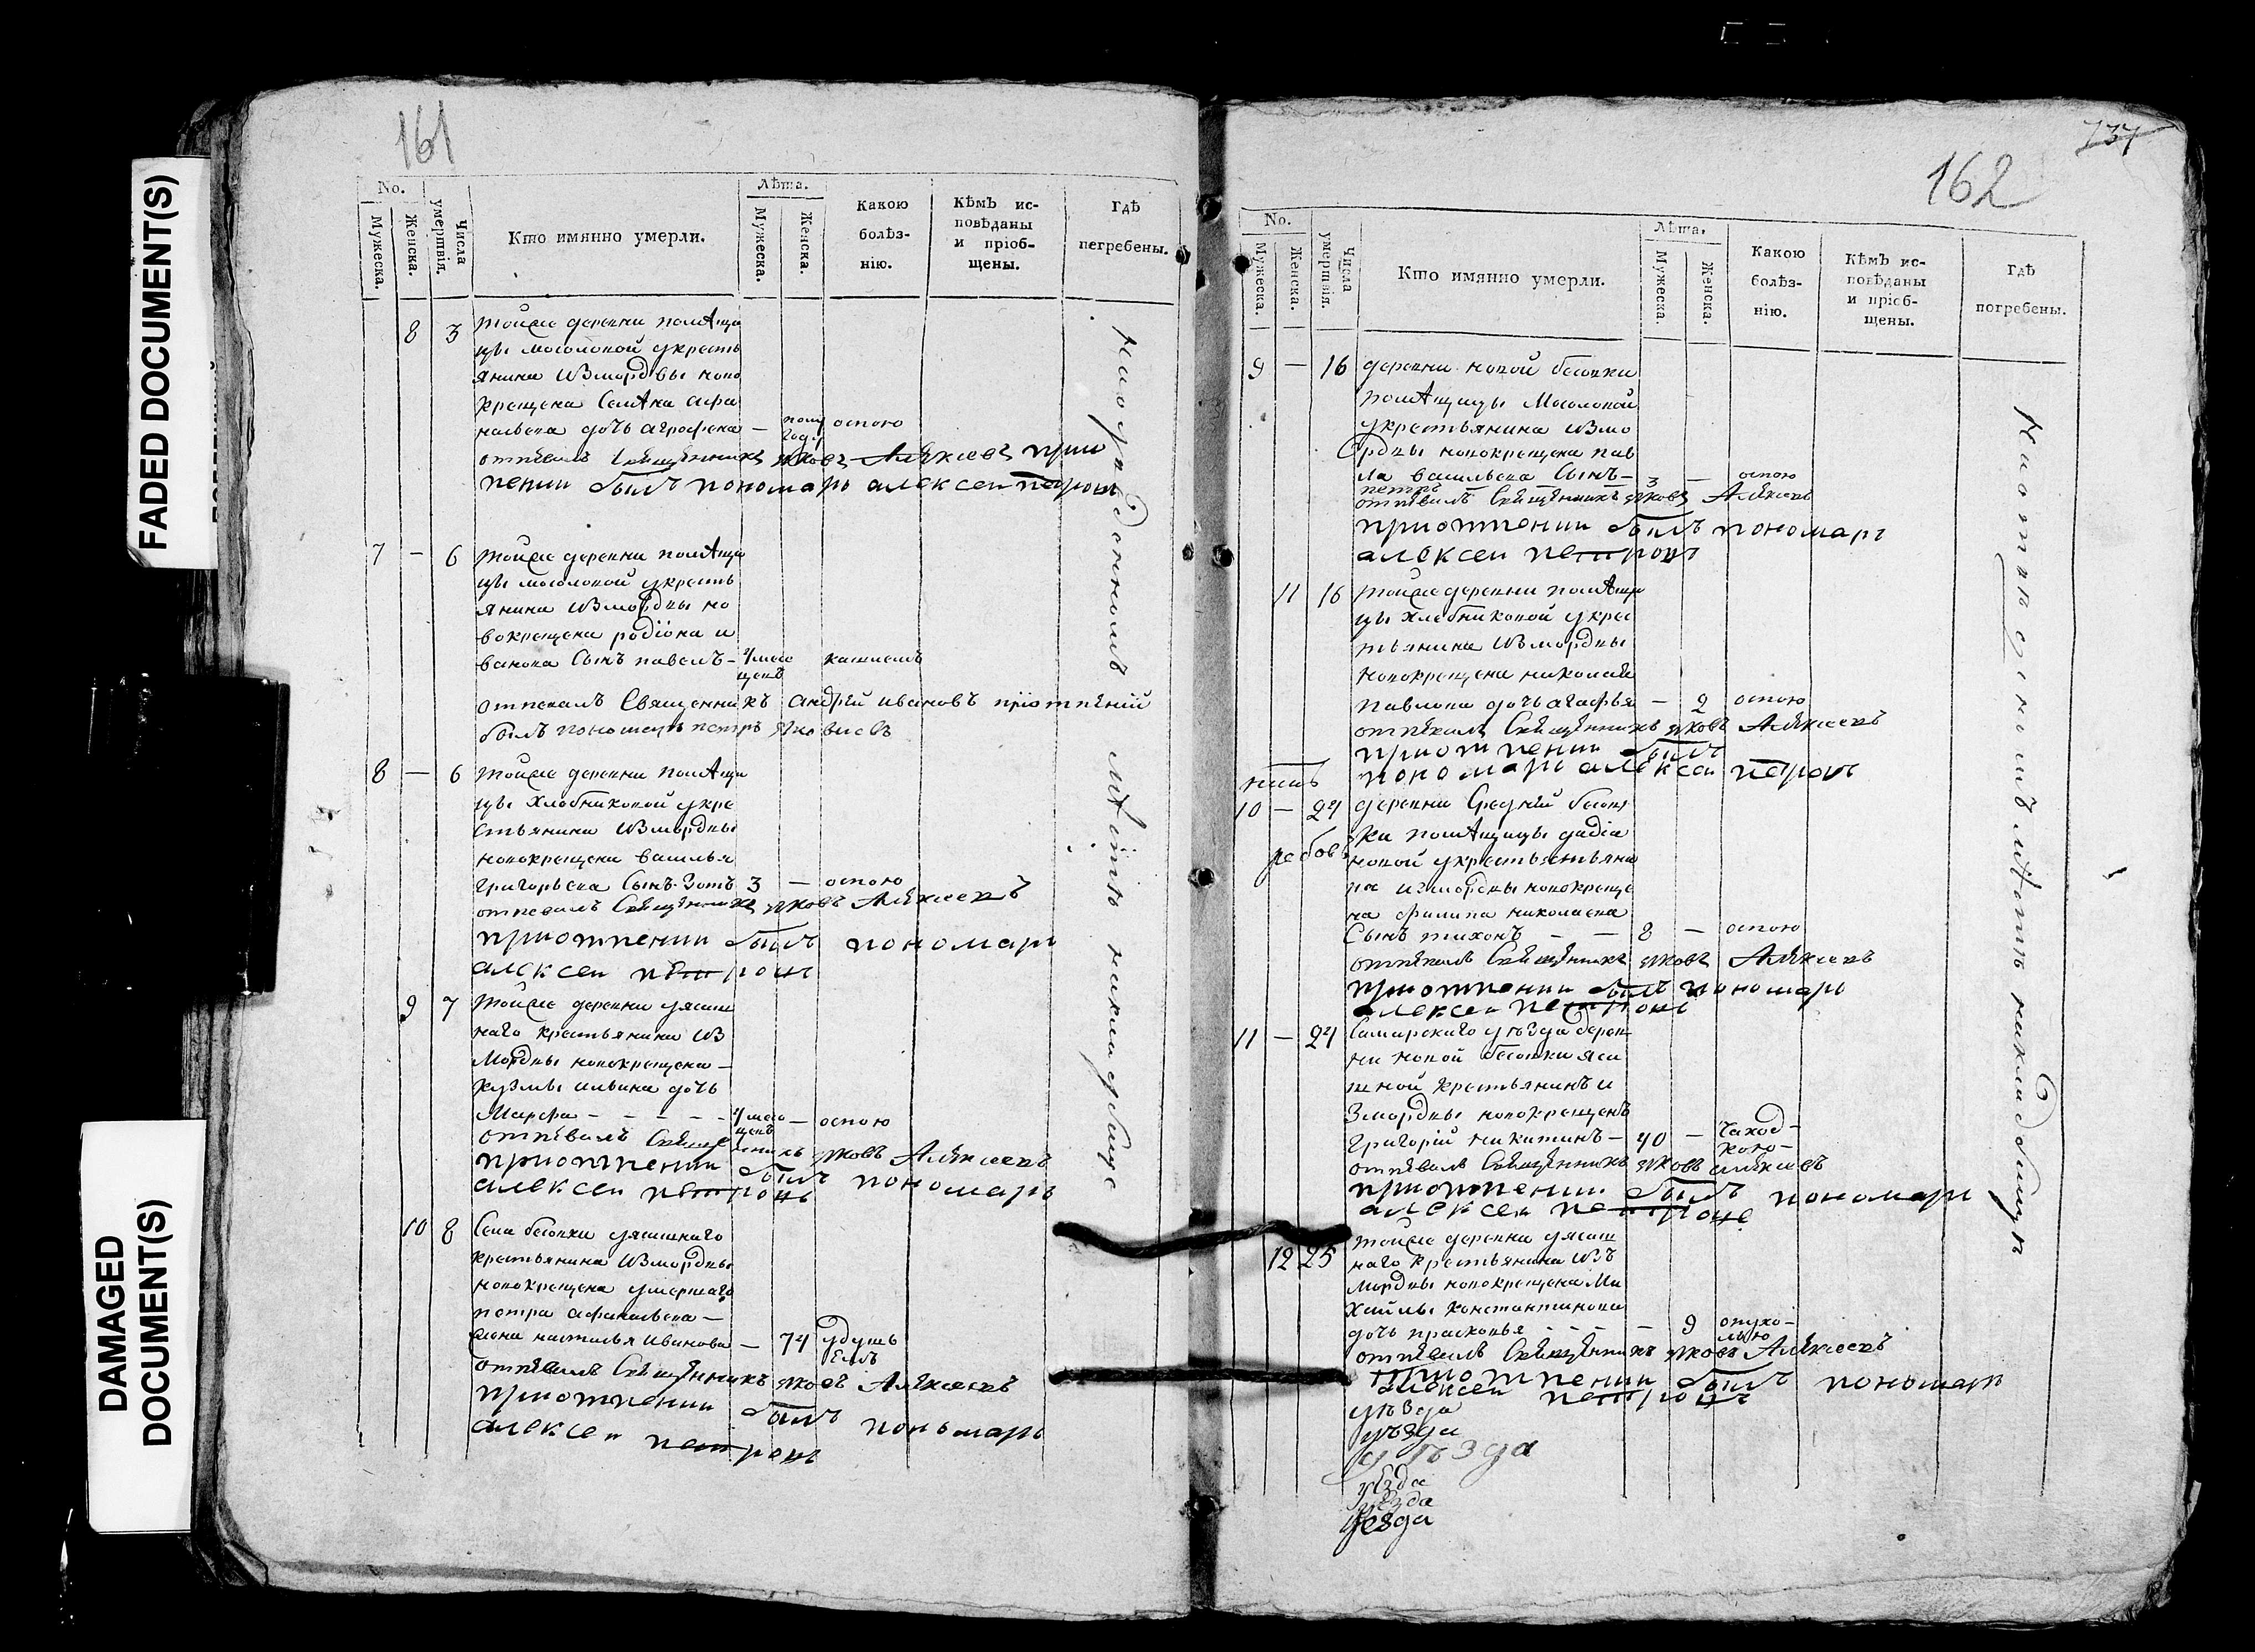 FADED DOCUMENT(S)
DAMAGED
DOCUMENT(S)
161
No.
Мужеска.
Женска.
Числа
умершвія.
Кто имянно умерли.
Лѣта.
Мужеска.
Женска.
Какою
болѣз-
нію.
Кѣмъ ис-
повѣданы
и пріоб-
щены.
Гдѣ
пегребены.
8 3 тойже деревни помѣщи
цы мосоловой укресть
янина Измордвы ново
крещена Семѣна афа
насьева дочь аграфена — полу году оспою
отпевалъ Священникъ яковъ Алѣксеевъ приот
пении былъ пономарь алексеи петровъ
7 — 6 тойже деревни помѣщи
цы мосоловой укресть
янина Измордвы но
вокрещена родіона и
ванова Сынъ павелъ — 4 меся цевъ кашлемъ
отпевалъ Священникъ андрѣй ивановъ пріотпѣніи
былъ пономарь петръ яковлевъ
8 — 6 тойже деревни помѣщи
цы хлебниковой укре
стьянина Измордвы
новокрещена василья
григорьева Сынъ Зотъ 3 — оспою
отпевалъ Священникъ яковъ Алѣксеевъ
приотпении былъ пономарь
алексеи петровъ
9 7 тойже деревни уясаш
наго крестьянина Из
Мордвы новокрещена —
кузмы ильина дочь
Марфа — — — — 4 меся цевъ — оспою
отпѣвалъ Священникъ яковъ Алѣксеевъ
приотпении былъ пономарь
алексеи петровъ
10 8 Села бесовки уясашнаго
крестьянина Измордвы
новокрещена умершаго
петра афанасьева —
жена наталья иванова — 74 удушь емъ
отпѣвалъ Священникъ яковъ Алѣксеевъ
приотпении былъ пономарь
алексеи петровъ
мѣстѣ накладбище
737
162
No.
Мужеска.
Женска.
Числа
умершвія.
Кто имянно умерли.
Лѣта.
Мужеска.
Женска.
Какою
болѣз-
нію.
Кѣмъ ис-
повѣданы
и пріоб-
щены.
Гдѣ
погребены.
9 — 16 деревни новой бесовки
помѣщицы Мосоловой
укрестьянина Измо
рдвы новокрещена пав
ла васильева Сынъ — 3 — оспою
петръ
отпѣвалъ Священникъ яковъ Алѣксеевъ
приотпении былъ пономарь
алексеи петровъ
11 16 тойже деревни помѣщи
цы хлебниковой укрес
тьянина Измордвы
новокрещена николая
павлова дочь агафья — 2 оспою
отпѣвалъ Священникъ яковъ Алѣксеевъ
приотпении былъ
пономарь алексеи петровъ
10 — 24 деревни Средней бесов
ки помѣщицы
новой укрестьянина
измордвы новокреще
на филипа николаева
Сынъ тихонъ — — 8 — оспою
отпѣвалъ Священникъ яковъ Алѣксеевъ
приотпении былъ пономарь
алексеи петровъ
11 — 24 Самарскаго уѣзда дерев
ни новой бесовки яса
шной крестьянинъ и
Змордвы новокрещенъ
григорій никитинъ — 40 — чахот-
кою —
отпѣвалъ Священникъ яковъ алѣксеевъ
приотпении былъ пономарь
алексеи петровъ
12 25 тойже деревни уясаш
наго крестьянина Изъ
мордвы новокрещена Ми
хайлы константинова
дочь прасковья — — — — 9 опухо-
лью
отпѣвалъ Священникъ яковъ Алѣксеевъ
приотпении былъ пономарь
алексеи петровъ
уѣзда
уѣзда
уѣзда
уѣзда
уѣзда
уезда
наотведенномъ мѣстѣ накладбищи